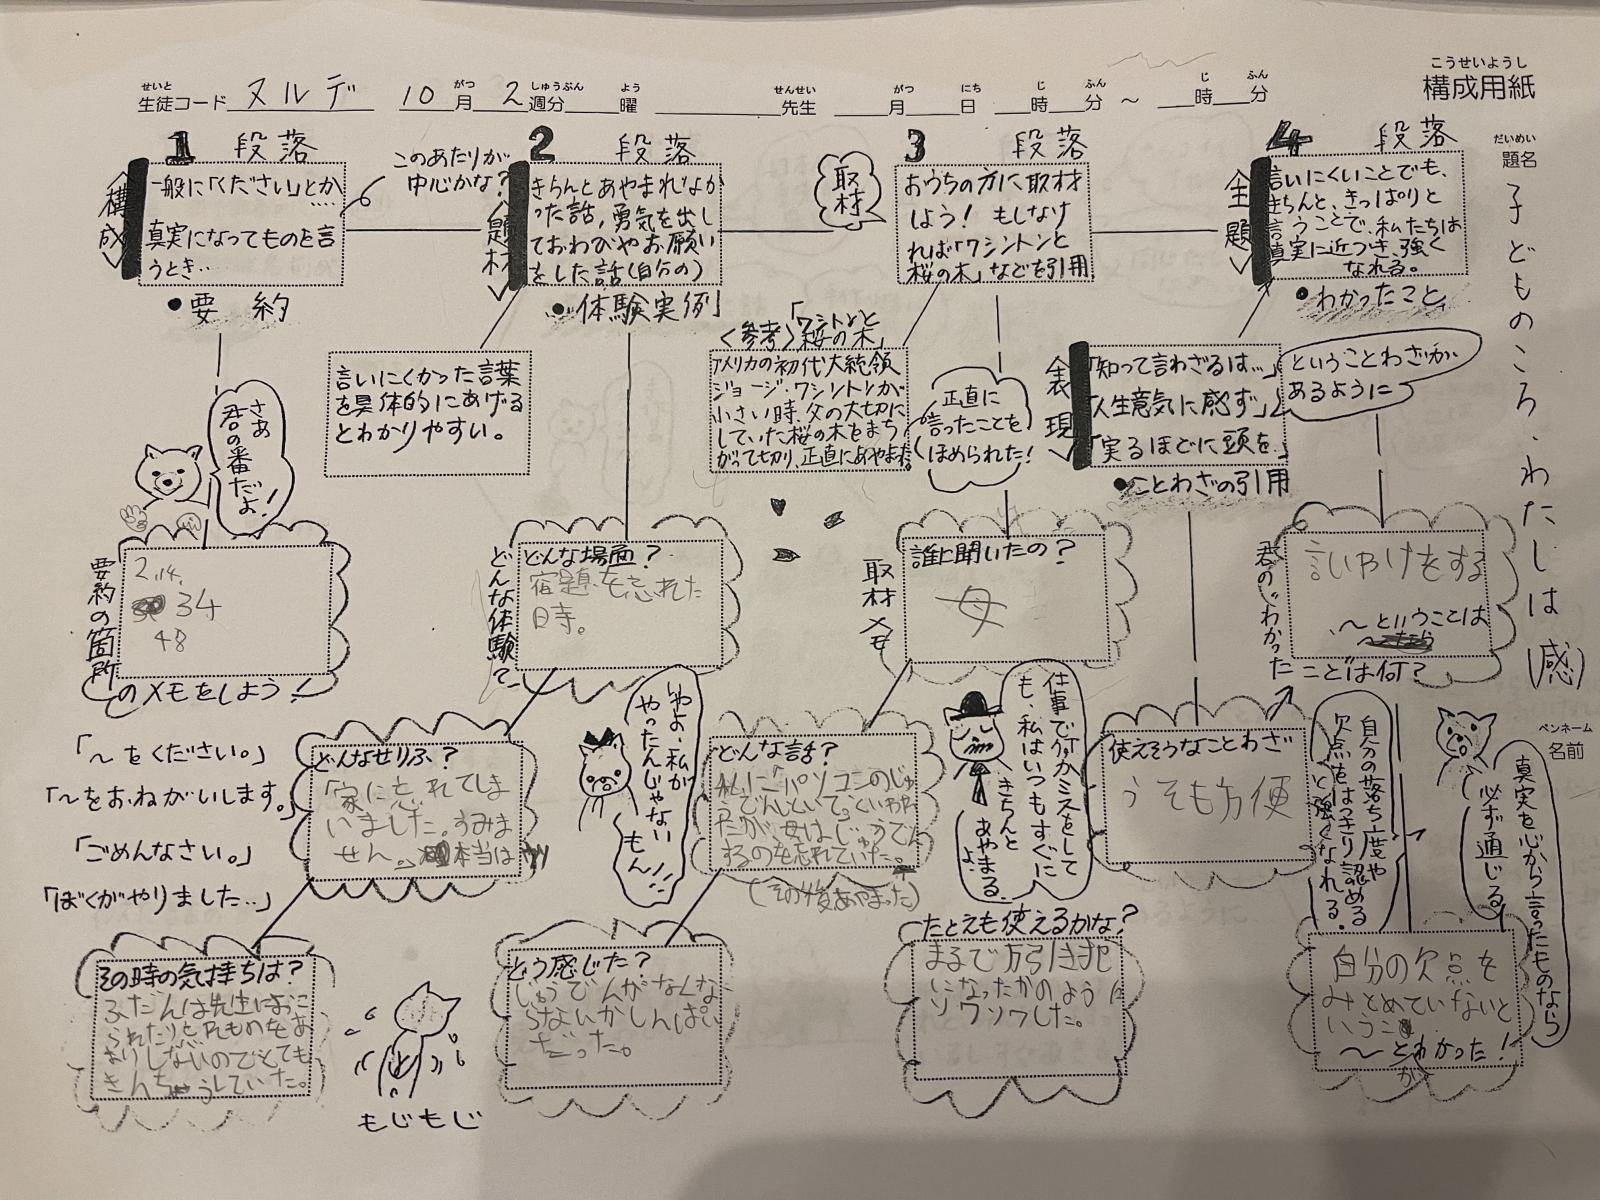 こうせいようし
構成用紙
せいと がつ しゅうぶん よう せんせい がつ にち じ ふん じ ふん
生徒コード ヌルデ 10月 2週分 曜 先生 月 日 時 分 ～ 時 分
だいめい
題名
子どものころ、わたしは(感)
ペンネーム
名前
1 段落
構成
一般に「ください」とか
真実になってものを言
うとき‥
このあたりが
中心かな?
•要約
2 段落
題材
きちんとあやまれなか
った話,勇気を出し
ておわびやお願い
をした話(自分の)
•体験実例
取材
3 段落
おうちの方に取材
しよう! もしなけ
れば「ワシントンと
桜の木」などを引用
4 段落
主題
言いにくいことでも、
きちんと、きっぱりと
言うことで、私たちは
真実に近づき、強く
なれる。
•わかったこと
言いにくかった言葉
を具体的にあげる
とわかりやすい。
<参考>「ワシントンと
桜の木」
アメリカの初代大統領
ジョージ・ワシントンが
小さい時、父の大切に
していた桜の木をまち
がって切り、正直にあやまった。
正直に
言ったことを
ほめられた!
表現
「知って言わざるは…」
「人生意気に感ず」
「実るほどに頭を…」
•ことわざの引用
ということわざが
あるように
さあ
君の番だよ!
要約の箇所
のメモをしよう!
2.14.
34
48
どんな体験?
どんな場面?
宿題を忘れた
時。
取材メモ
誰に聞いたの?
母
君の"わかった
ことは何?
言いわけをする
、～ということは
「～をください。」
「～をおねがいします。」
「ごめんなさい。」
「ぼくがやりました‥」
どんなせりふ?
「家に忘れてしま
いました。すみま
せん。 本当は
いやよ、私が
やったんじゃない
もん!!
どんな話?
私に「パソコンのじゅ
うでんしといて。」といわれ
たが、母はじゅうでん
するのを忘れていた。
(その後あやまった)
仕事で何かミスをして
も、私はいつもすぐに
きちんと
あやまる
よ。
使えそうなことわざ
うそも方便
自分の落ち度や
欠点をはっきり認める
と強くなれる。
真実を心から言ったものなら
必ず通じる
その時の気持ちは?
ふだんは先生におこ
られたり忘れものをあ
まりしないのでとても
きんちょうしていた。
もじもじ
どう感じた?
じゅうでんがなくな
らないかしんぱい
だった。
たとえも使えるかな?
まるで万引き犯
になったかのように
ソワソワした。
自分の欠点を
みとめていないと
いうこ
～とわかった!